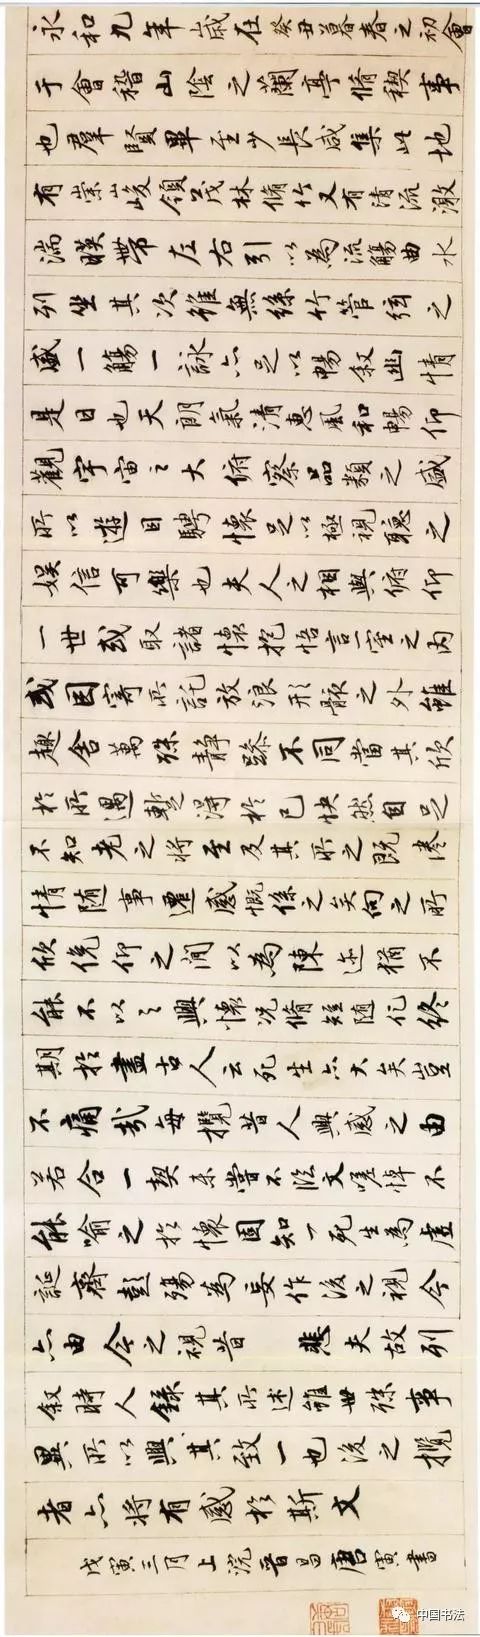 永和九年歲在癸丑暮春之初會
于會稽山陰之蘭亭脩稧事
也羣賢畢至少長咸集此地
有崇山峻領茂林脩竹又有清流激
湍暎帶左右引以為流觴曲水
列坐其次雖無絲竹管弦之
盛一觴一詠亦足以暢敘幽情
是日也天朗氣清惠風和暢仰
觀宇宙之大俯察品類之盛
所以遊目騁懷足以極視聽之
娛信可樂也夫人之相與俯仰
一世或取諸懷抱悟言一室之內
或因寄所託放浪形骸之外雖
趣舍萬殊靜躁不同當其欣
於所遇暫得於己快然自足
不知老之將至及其所之既惓
情隨事遷感慨係之矣向之所
欣俛仰之間以為陳迹猶不
能不以之興懷況脩短隨化終
期於盡古人云死生亦大矣豈
不痛哉每攬昔人興感之由
若合一契未嘗不臨文嗟悼不
能喻之於懷固知一死生為虛
誕齊彭殤為妄作後之視今
亦由今之視昔 悲夫故列
敘時人錄其所述雖世殊事
異所以興其致一也後之攬
者亦將有感於斯文
戊寅三月上浣晉昌唐寅書
中国书法